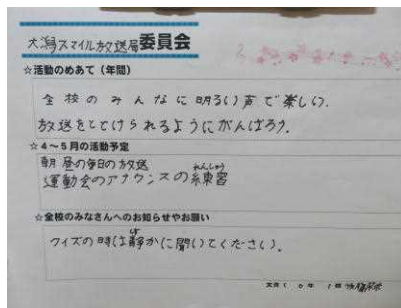 大潟スマイル放送局委員会
☆活動のめあて(年間)
全校のみんなに明るい声で楽しい
放送をとどけられるようにがんばろう。
☆4~5月の活動予定
朝昼の毎日の放送
運動会のアナウンスの練習
☆全校のみなさんへのお知らせやお願い
クイズの時は静かに聞いてください。